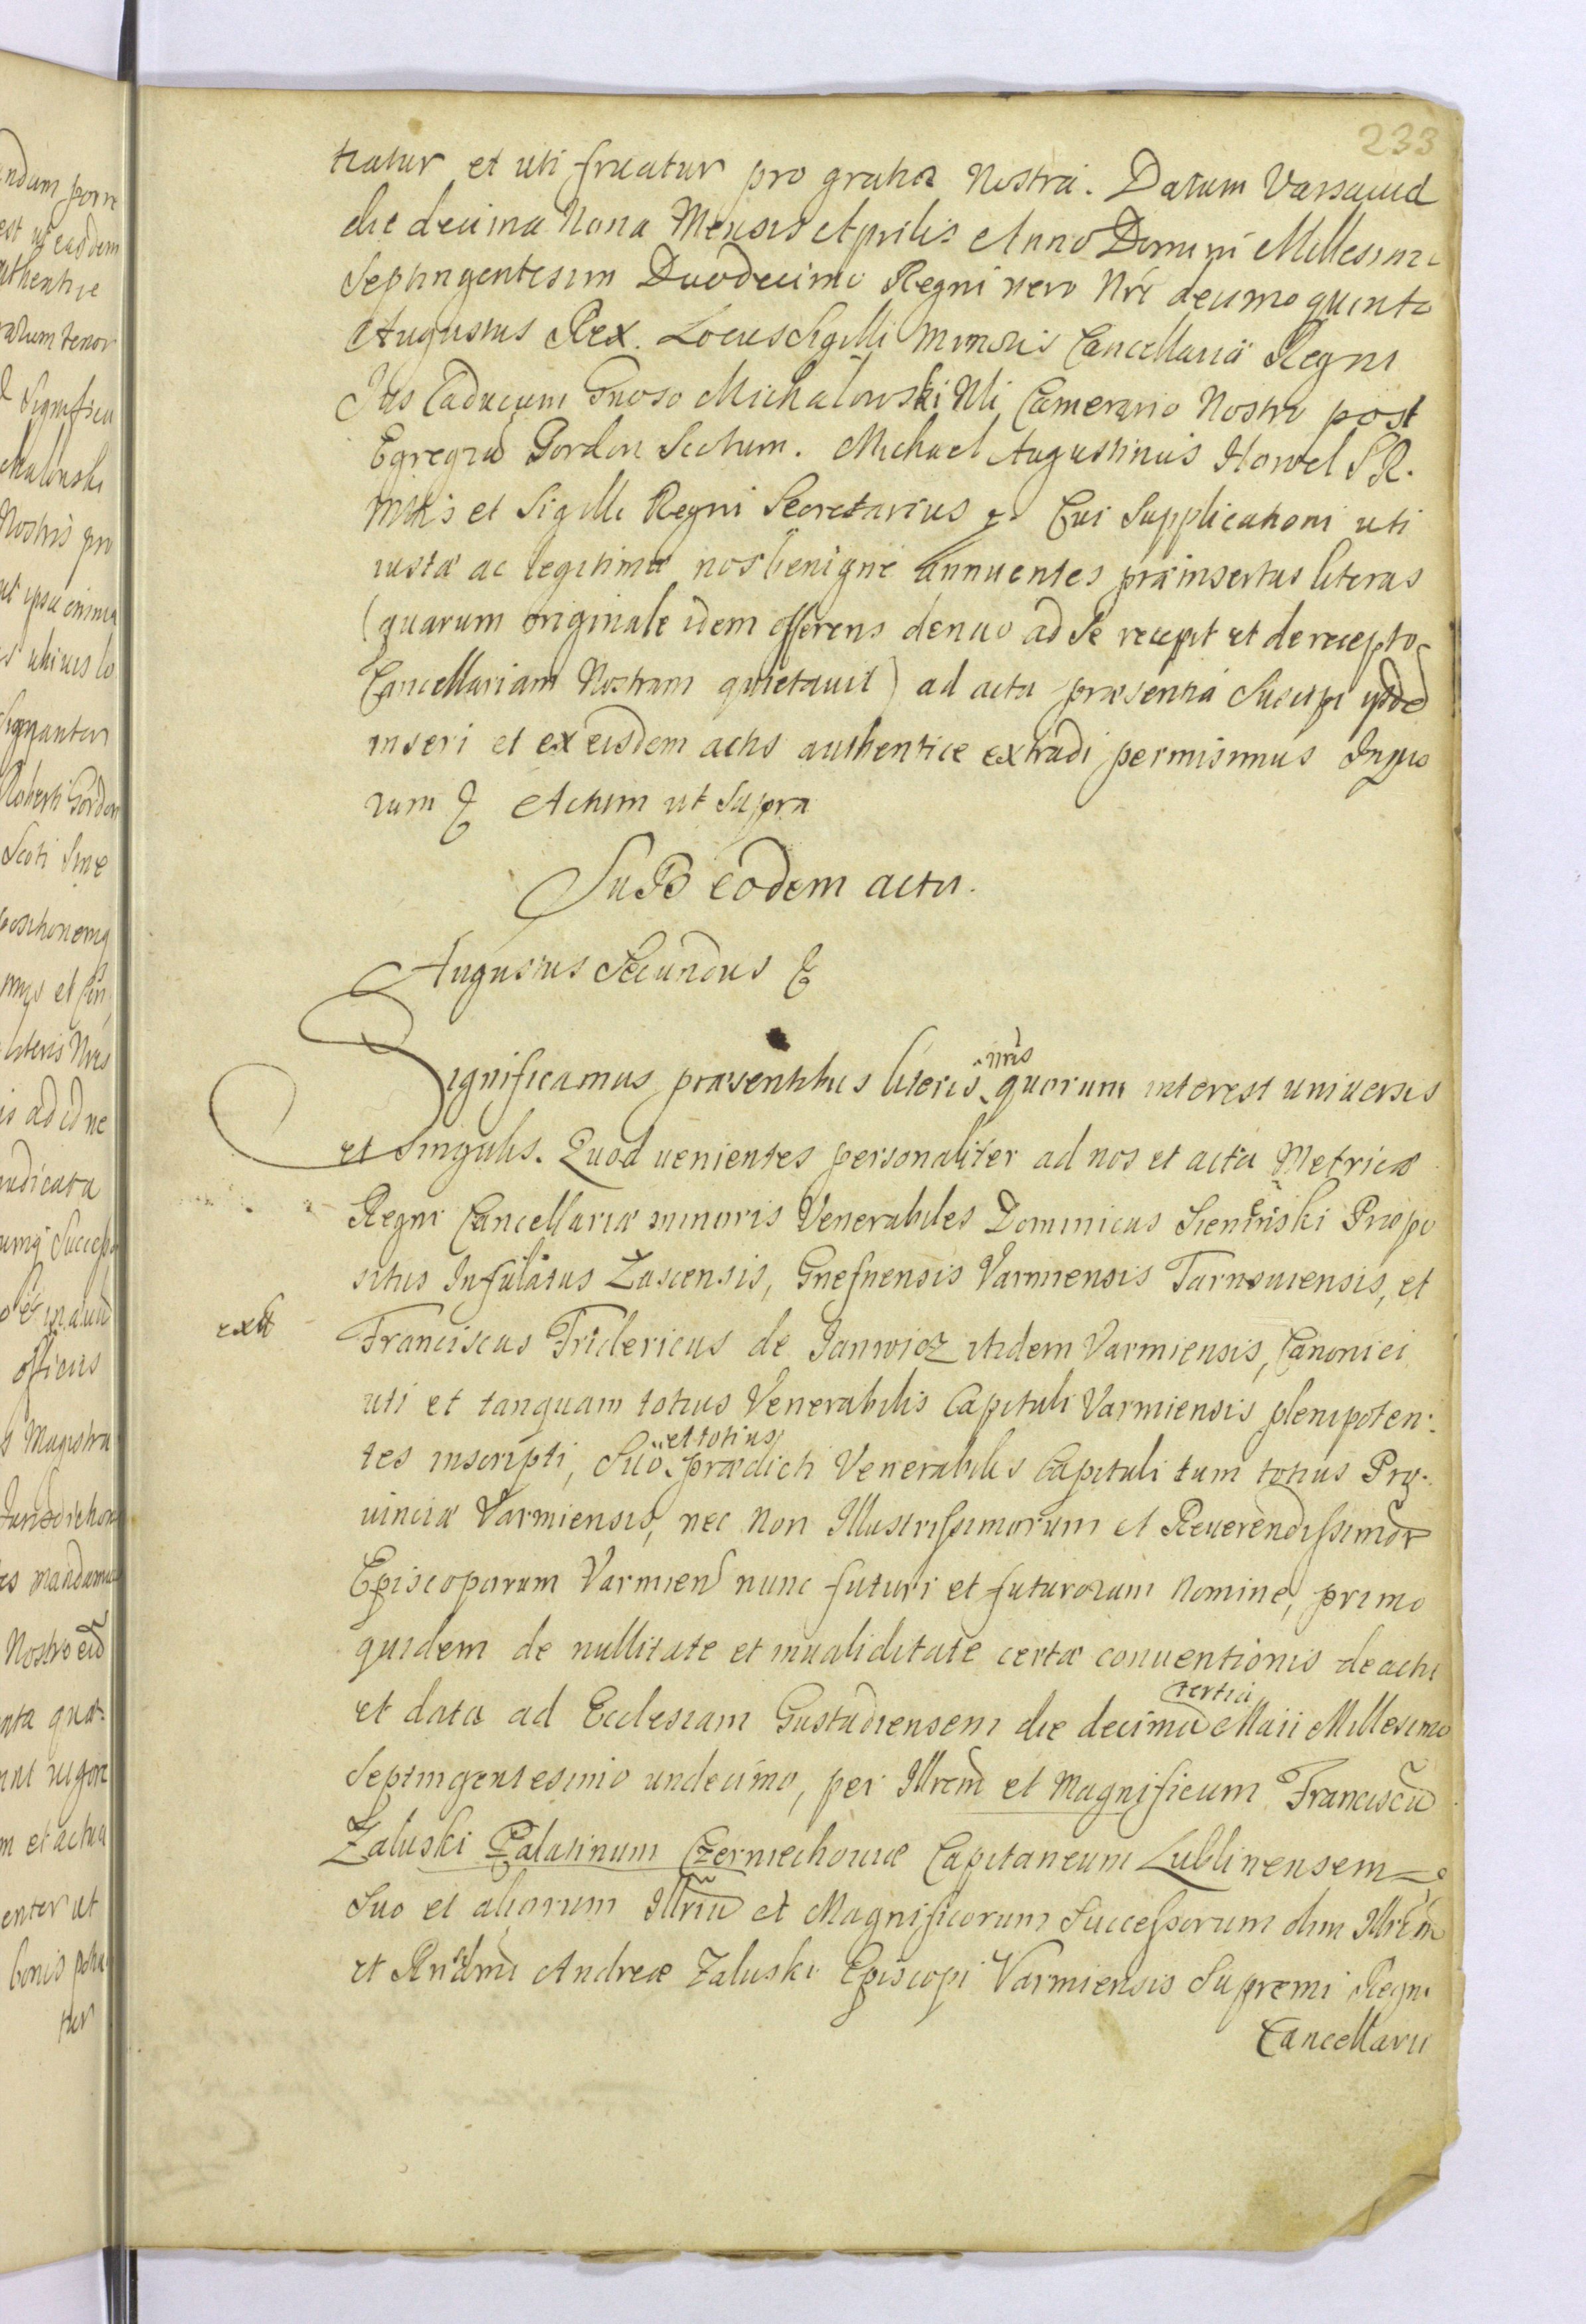 233
tiatur et uti fruatur pro gratia Nostra. Datum Varsaviæ
die decima Nona Mensis Aprilis Anno Domini Millesimo
Septingentesimo Duodecimo Regni vero Nri decimo quinto
Augustus Rex. Locus Sigilli minoris Cancellariæ Regni
Jus Caducum Gnoso Michałowski Nli Camerario Nostro post
Egregiu Gordon Scotum. Michael Augustinus Howel S R.
Mtis et Sigilli Regni Secretarius & Cui Supplicationi uti
iustæ ac legitimæ nos benigne annuentes præinsertas literas
(quarum originale idem offerens denuo ad Se recepit et de recepto
Cancellariam Nostram quietavit) ad acta præsentia Suscipi ysde
inseri et ex eisdem actis authentice extradi permisimus Inquo
rum & Actum ut Supra
Sub eodem actu.
Augustus Secundus &
Significamus præsentibus literis nris quorum interest universis
et Singulis. Quod venientes personaliter ad nos et acta Metricæ
Regni Cancellariæ minoris Venerabiles Dominicus Sieniński Præpo
situs Infulatus Zascensis, Gnesnensis Varmiensis Tarnoviensis, et
extt
Franciscus Fridericus de Janwicz itidem Varmiensis, Canonici
uti et tanquam totius Venerabilis Capituli Varmiensis plenipoten:
tes inscripti, Suo et totius prædicti Venerabilis Capituli tum totius Pro:
vinciæ Varmiensis, nec non Illustrissimorum et Reverendissimor
Episcoporum Varmien nunc futuri et futurorum Nomine, primo
quidem de nullitate et invaliditate certæ conventionis de actu
et data ad Ecclesiam Gustadiensem die decima tertia Maii Millesimo
Septingentesimo undecimo, per Illrem et Magnificum Franciscu
Załuski Palatinum Czerniechoviæ Capitaneum Lublinensem
Suo et aliorum Illriu et Magnificorum Successorum olim Illrim
et Rndmi Andreæ Załuski Episcopi Varmiensis Supremi Regni
Cancellarii